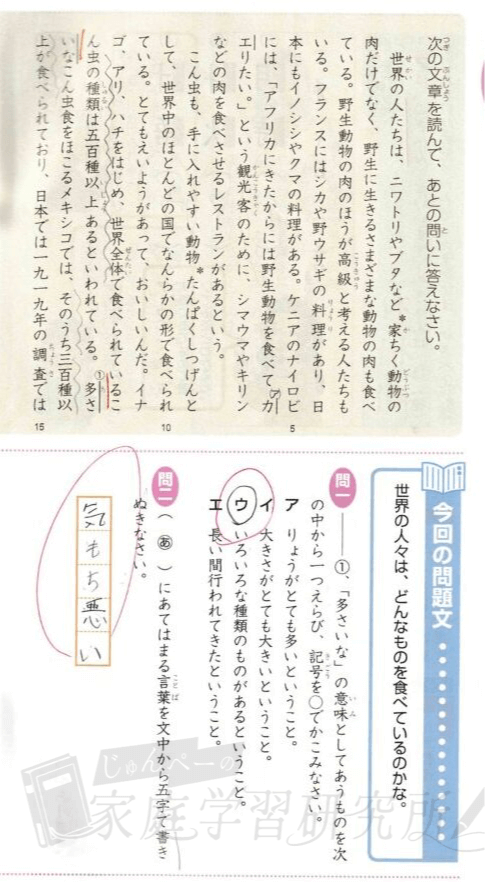 次の文章を読んで、あとの問いに答えなさい。
世界の人たちは、ニワトリやブタなど*家ちく動物の
肉だけでなく、野生に生きるさまざまな動物の肉も食べ
ている。野生動物の肉のほうが高級と考える人たちも
いる。フランスにはシカや野ウサギの料理があり、日
本にもイノシシやクマの料理がある。ケニアのナイロビ
には、「アフリカにきたからには野生動物を食べてカ
エりたい。」という観光客のために、シマウマやキリン
などの肉を食べさせるレストランがあるという。
こん虫も、手に入れやすい動物*たんぱくしつげんと
して、世界中のほとんどの国でなんらかの形で食べられ
ている。とてもえいようがあって、おいしいんだ。イナ
ゴ、アリ、ハチをはじめ、世界全体で食べられているこ
ん虫の種類は五百種以上あるといわれている。①多さ
いなこん虫食をほこるメキシコでは、そのうち三百種以
上が食べられており、日本では一九一九年の調査では
5
10
15
今回の問題文
世界の人々は、どんなものを食べているのかな。
問一 ――①、「多さいな」の意味としてあうものを次
の中から一つえらび、記号を○でかこみなさい。
ア りょうがとても多いということ。
イ 大きさがとても大きいということ。
ウ いろいろな種類のものがあるということ。
エ 長い間行われてきたということ。
問二 (あ)にあてはまる言葉を文中から五字で書き
ぬきなさい。
気もち悪い
じゅんぺーの
家庭学習研究所